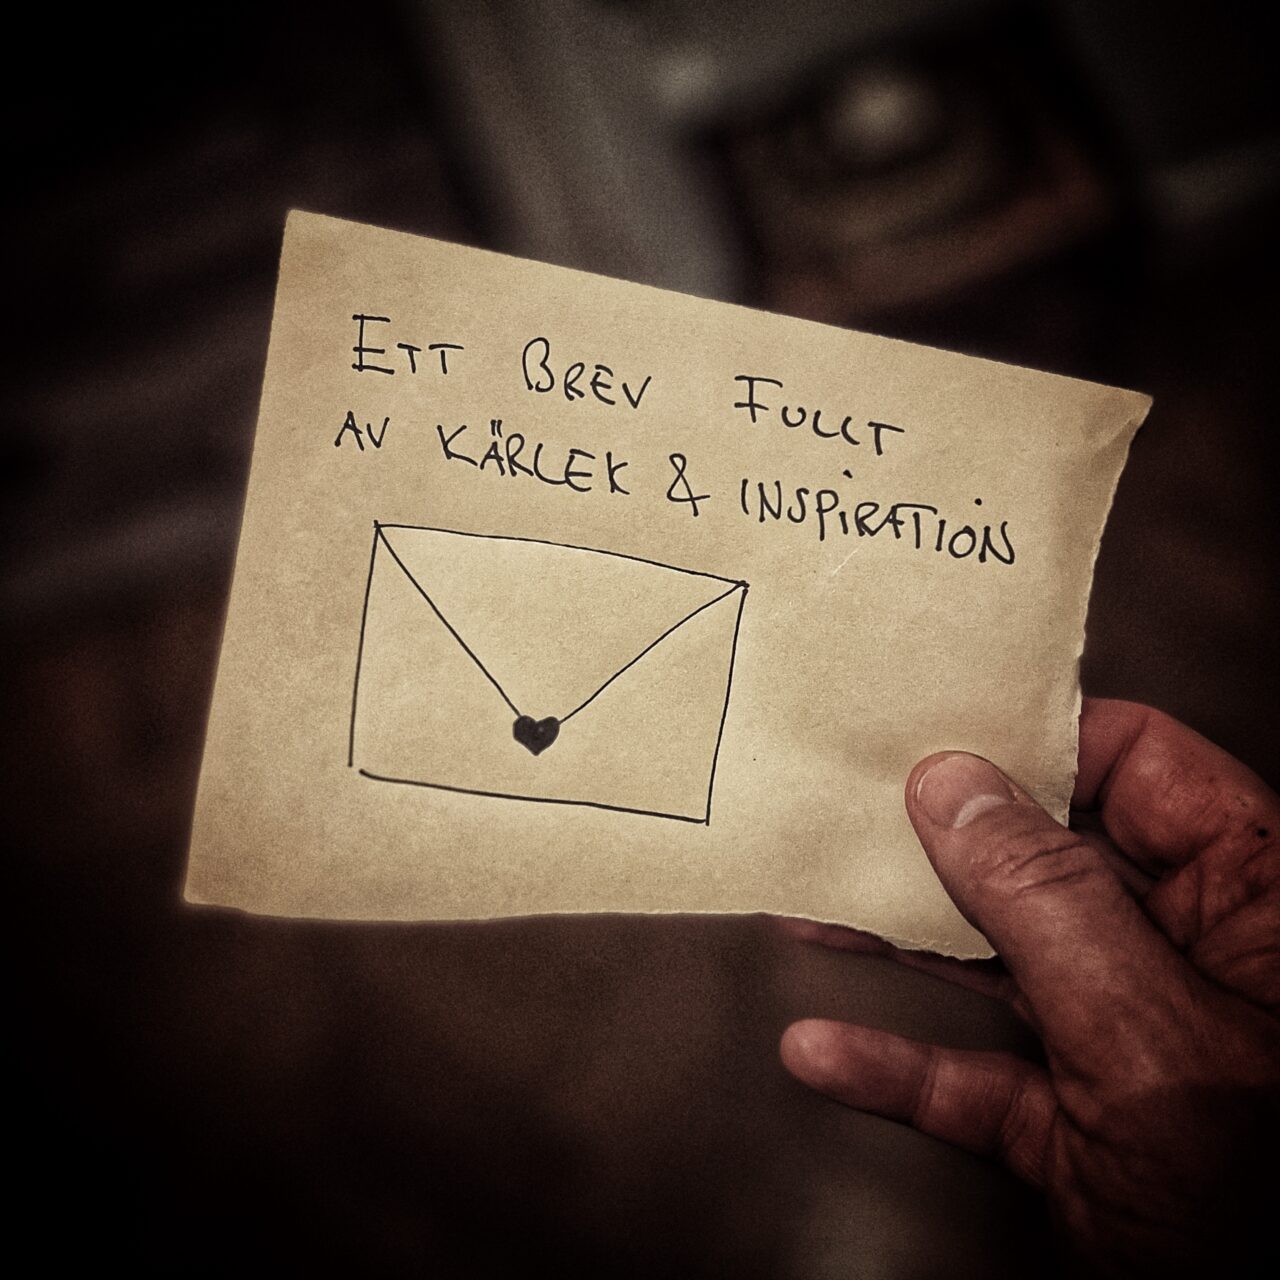 ETT BREV FULLT
AV KÄRLEK & INSPIRATION